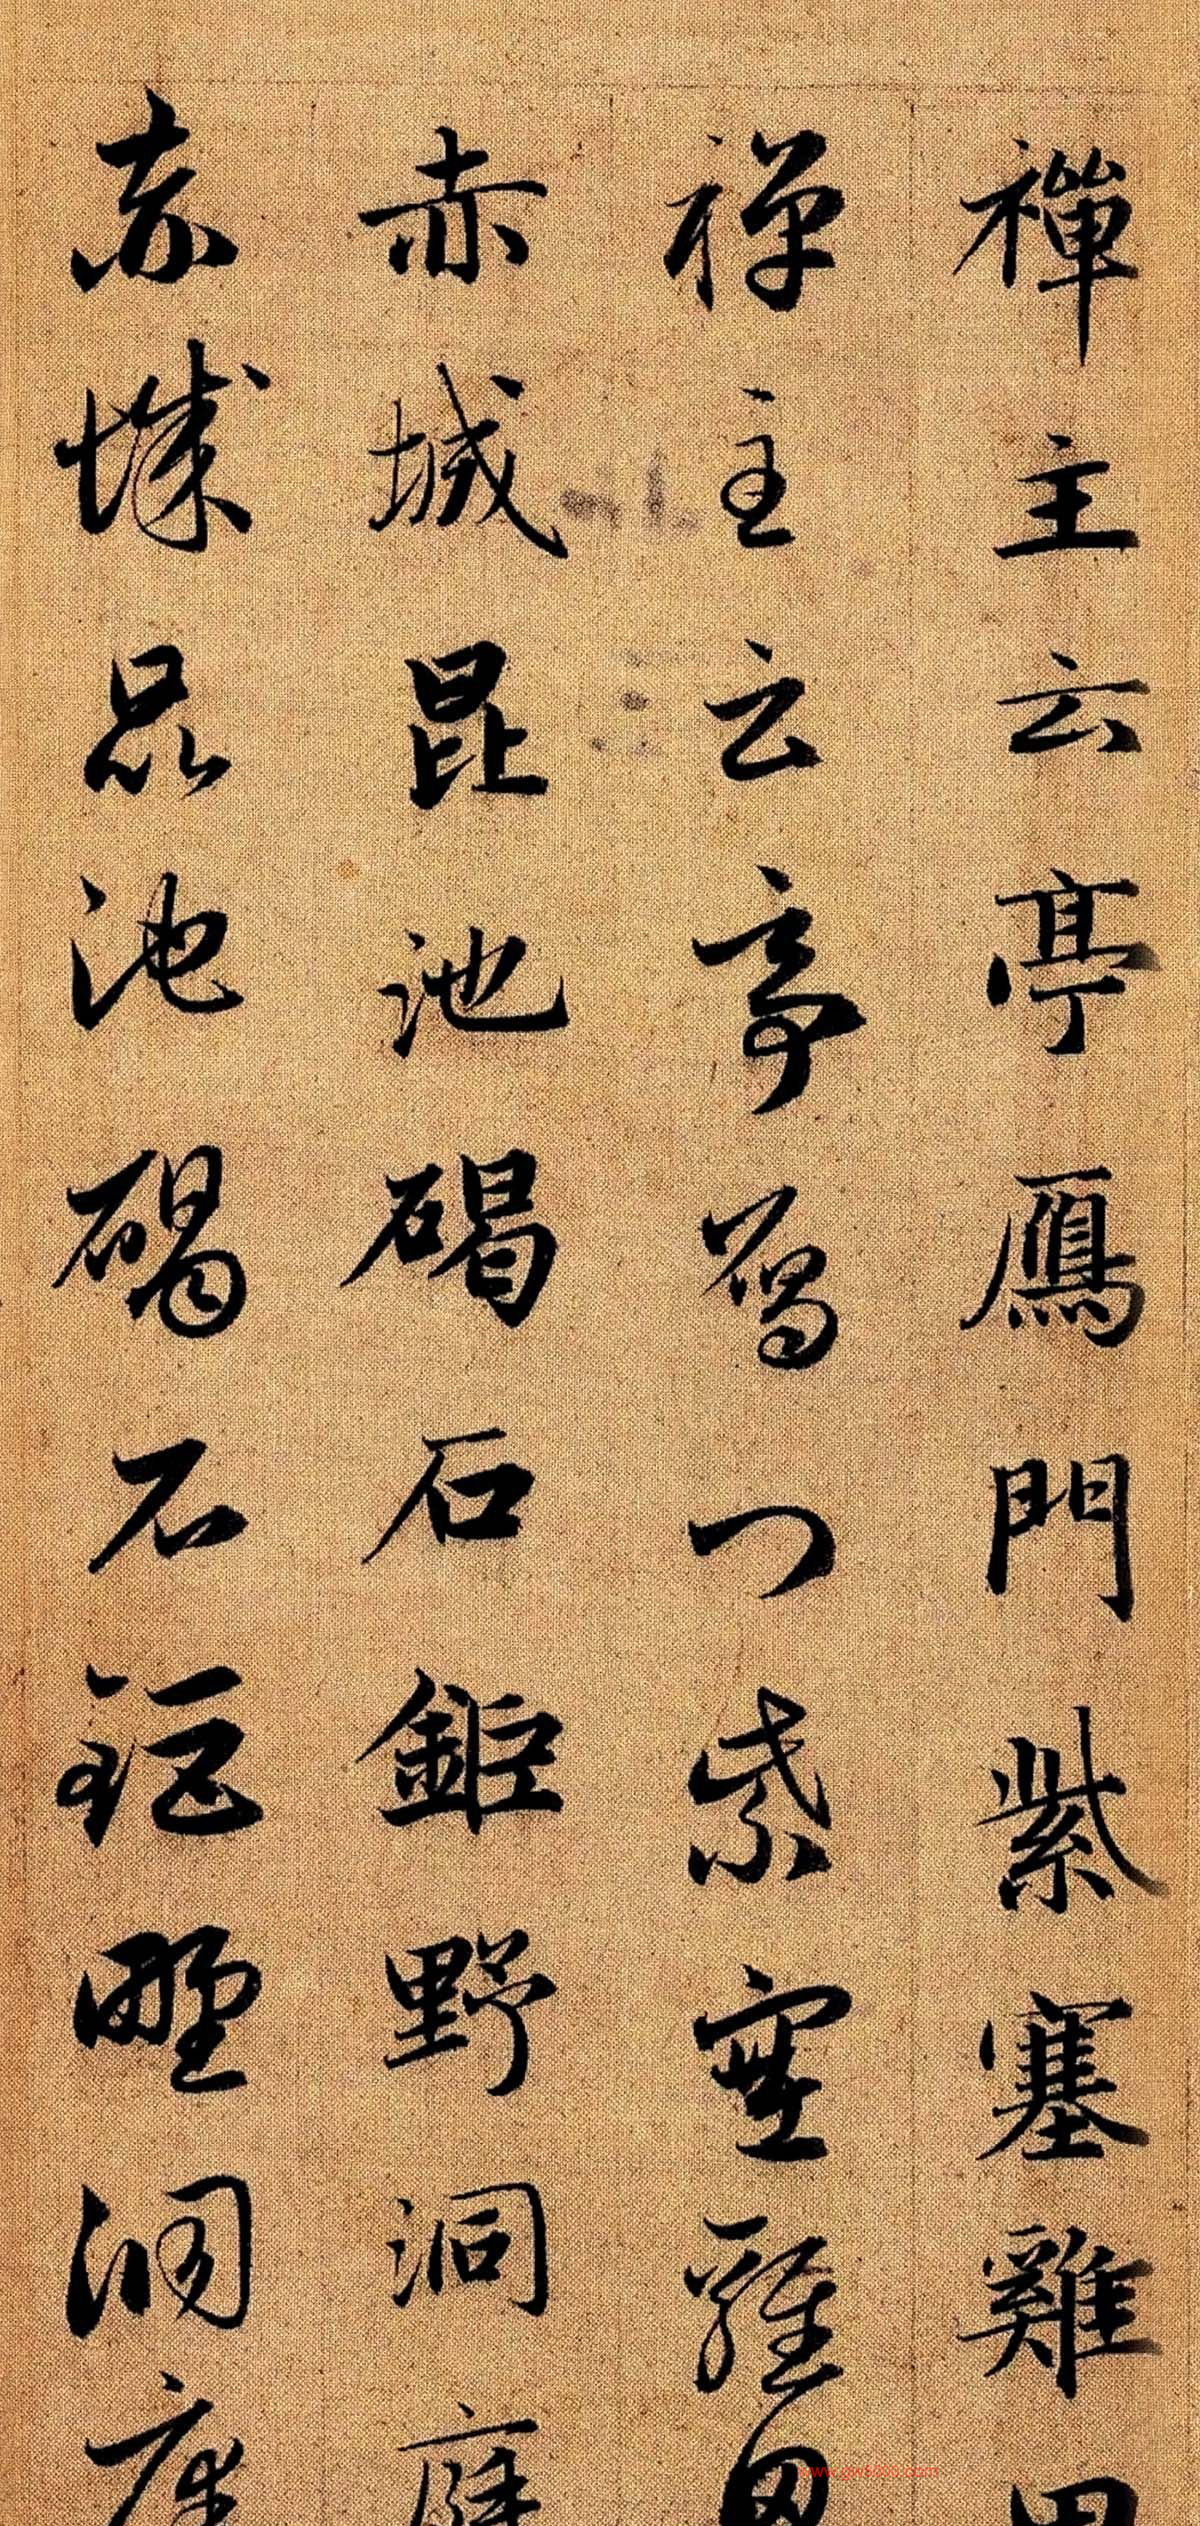 禪主云亭鴈門紫塞雞田
禪主云亭鴈門紫塞雞田
赤城昆池碣石鉅野洞庭
赤城昆池碣石鉅野洞庭
www.gw8000.com